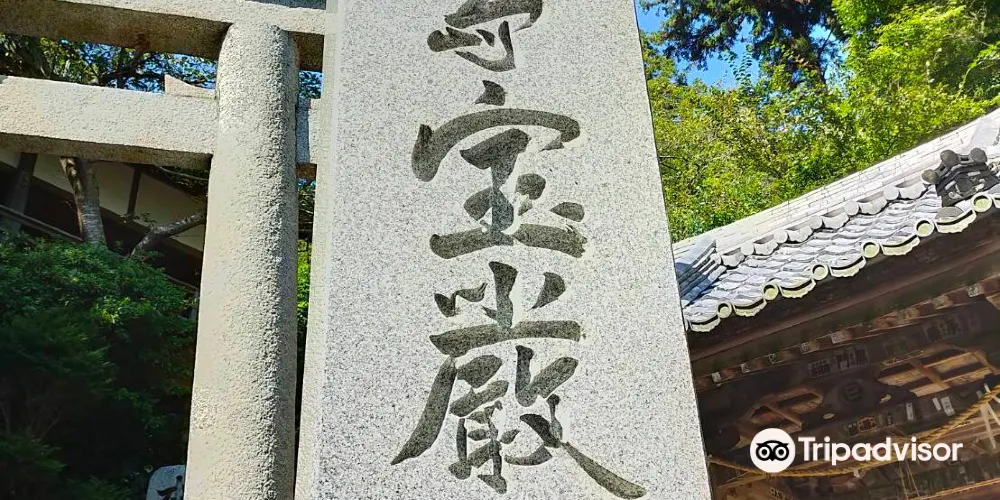 宝厳
Tripadvisor